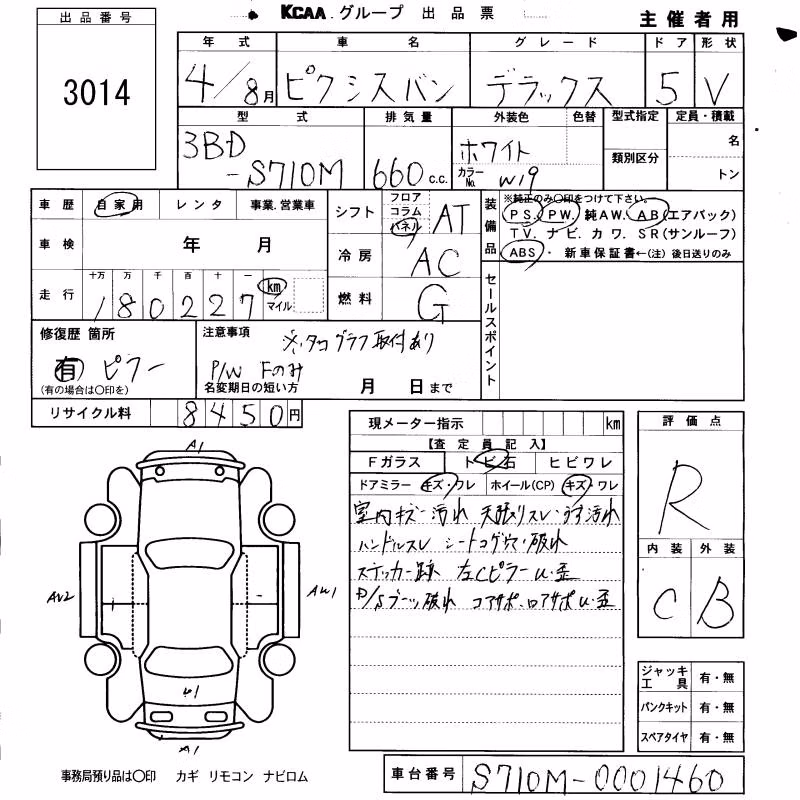 KCAA.グループ 出品票
主催者用
出品番号
3014
年式 車名 グレード ドア 形状
4/8月 ピクシスバン デラックス 5 V
型式 排気量 外装色 色替 型式指定 定員・積載
3BD-S710M 660c.c. ホワイト カラーNo. W19 類別区分 名 トン
車歴 自家用 レンタ 事業.営業車
シフト フロア コラム パネル AT
装備品 ※純正のみ○印をつけて下さい。
PS. PW. 純AW. AB(エアバック)
TV. ナビ. カワ. SR(サンルーフ)
ABS・ 新車保証書←(注)後日送りのみ
車検 年 月
冷房 AC
走行 十万 万 千 百 十 一
180227 km マイル
燃料 G
セールスポイント
修復歴 箇所
有 ピラー
(有の場合は○印を)
注意事項
※.タコグラフ取付あり
P/W Fのみ
名変期日の短い方 月 日まで
リサイクル料 8450円
現メーター指示 km
【査定員記入】
Fガラス トビ石 ヒビワレ
ドアミラー キズ・ワレ ホイール(CP) キズ・ワレ
室内キズ・汚れ 天張りスレ・うす汚れ
ハンドルスレ シートコゲ穴・破れ
ステッカー跡 左CピラーU・歪
P/Sブーツ破れ コアサポ・ロアサポU・歪
評価点
R
内装 外装
C B
A1
AU2
AW1
U1
A1
ジャッキ工具 有・無
パンクキット 有・無
スペアタイヤ 有・無
事務局預り品は○印 カギ リモコン ナビロム
車台番号 S710M-0001460